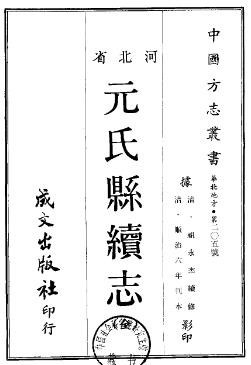 中國方志叢書
華北地方•第二〇五號
據
清・祖永杰續修
清・順治六年刊本
影印
河北省
元氏縣續志
成文出版社印行